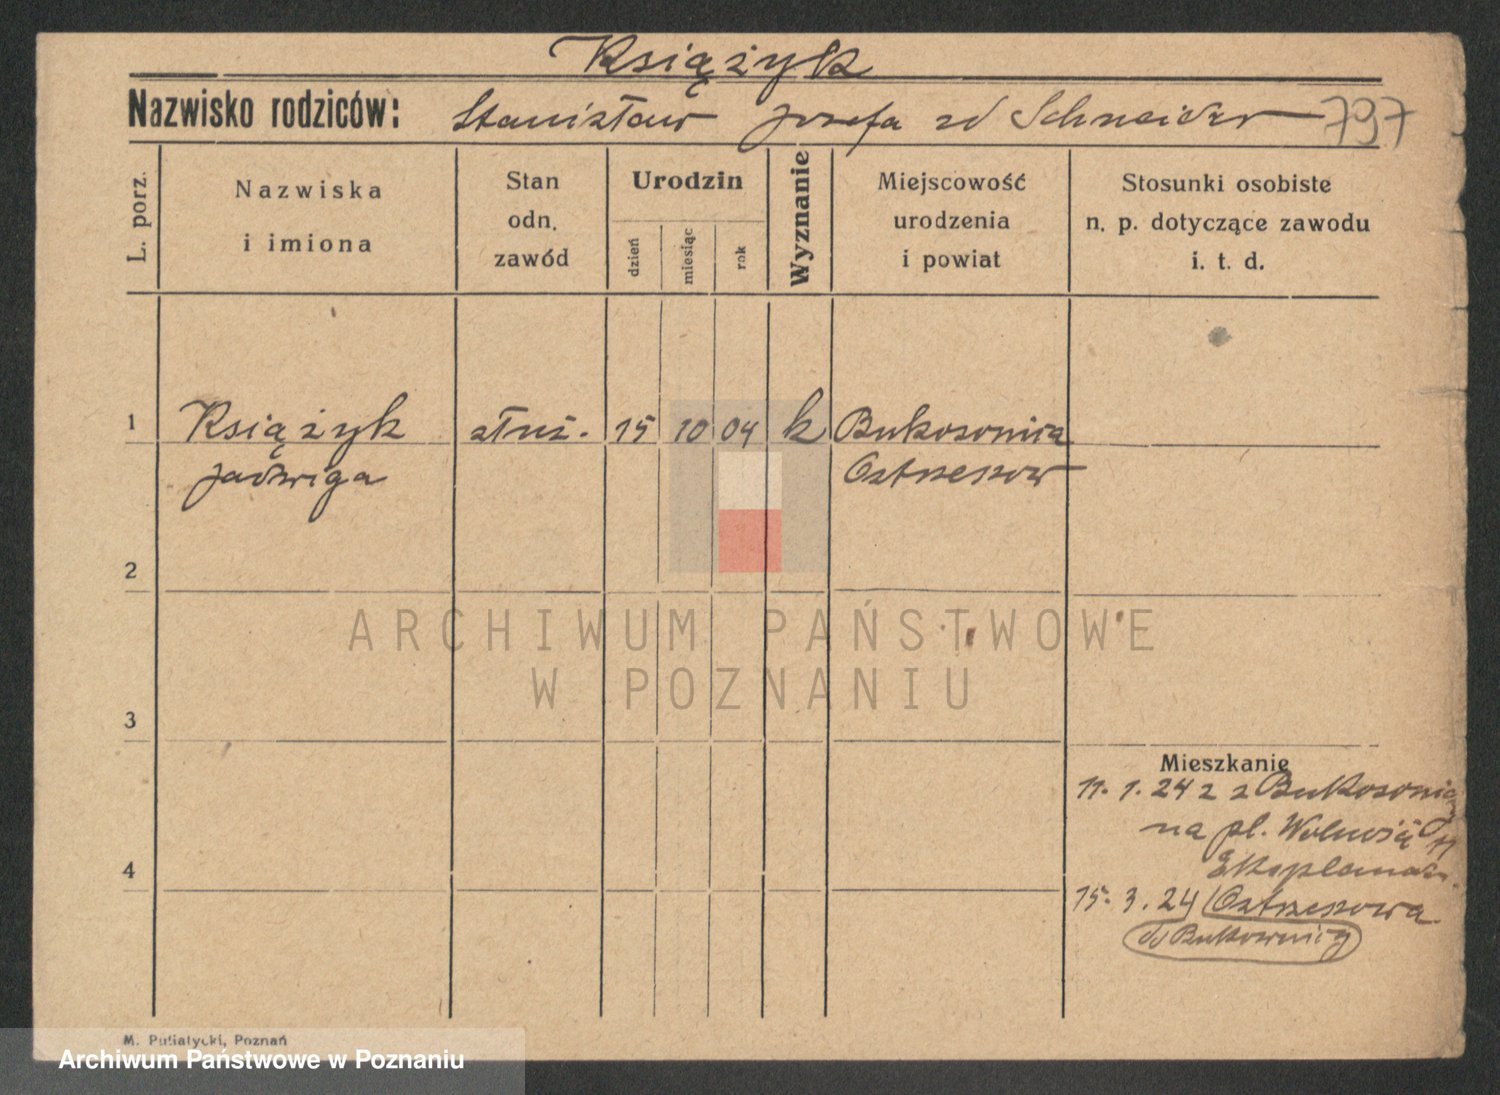 Książyk
Nazwisko rodziców: Stanisław Józefa zd Schneider 797
L. porz.
Nazwiska
i imiona
Stan
odn.
zawód
Urodzin
dzień
miesiąc
rok
Wyznanie
Miejscowość
urodzenia
i powiat
Stosunki osobiste
n. p. dotyczące zawodu
i. t. d.
1 Książyk służ. 15 10 04 k Bukosowica
Jadwiga Ostrzeszow
2
ARCHIWUM PAŃSTWOWE
W POZNANIU
3
Mieszkanie
11. 1. 24 z z
na pl. Wolności 11
4
15. 3. 24 Ostrzeszowa
do Bukownicy
M. Putiatycki, Poznań
Archiwum Państwowe w Poznaniu